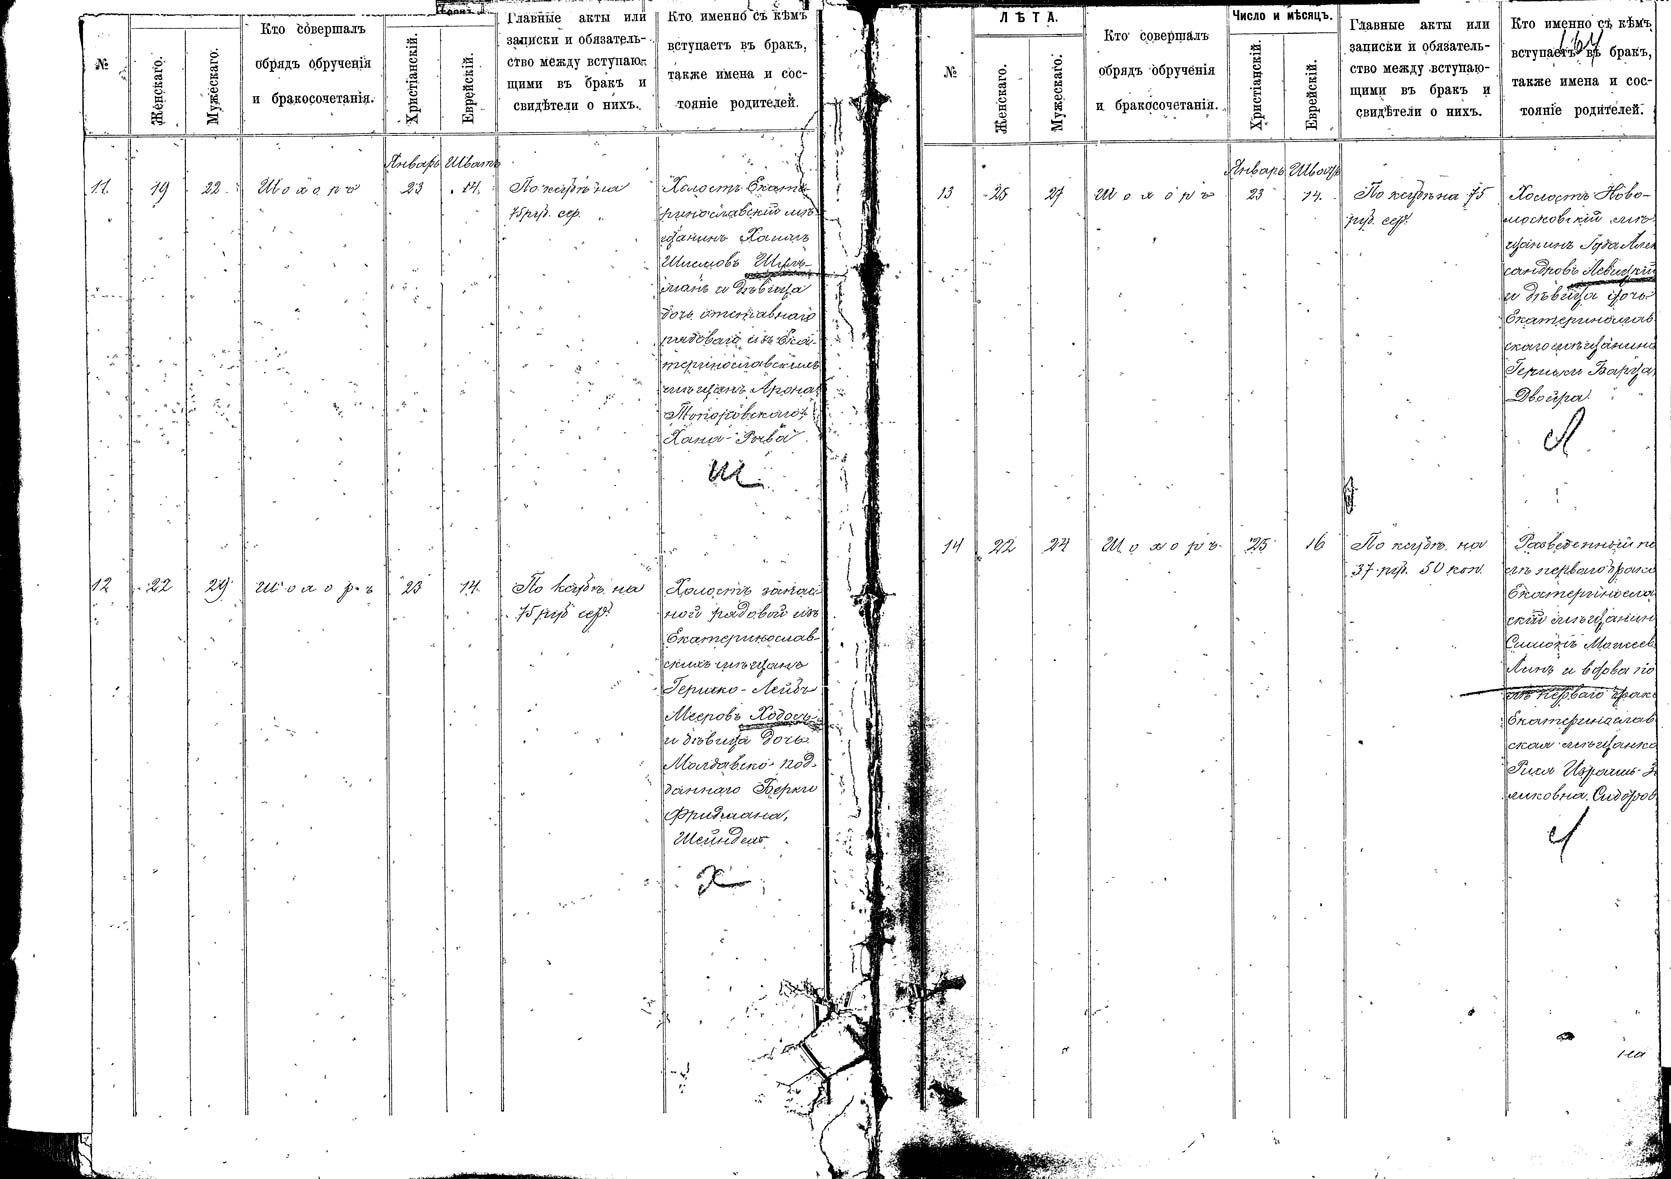 №
Женскаго.
Мужескаго.
Кто совершалъ
обрядъ обрученія
и бракосочетанія.
Христіанскій.
Еврейскій.
Главные акты или
записки и обязатель-
ство между вступаю-
щими въ бракъ и
свидѣтели о нихъ.
Кто именно съ кѣмъ
вступаетъ въ бракъ,
также имена и сос-
тояніе родителей.
Январь Шватъ
11. 19 22 Шохоръ 23 14. По ксубѣ на
75 руб. сер.
Холостъ Екате-
ринославскій мѣ-
щанинъ Хаимъ
Шлемовъ Шуль-
манъ и дѣвица
дочь отставнаго
рядоваго изъ Ека-
теринославскихъ
мѣщанъ Арона
Топоровскаго,
Хана-Рива
Ш
12 22 29 Шохоръ 23 14. По ксубѣ на
75 руб сер.
Холостъ запас-
ной рядовой изъ
Екатеринослав-
скихъ мѣщанъ
Гершко-Лейбъ
Мееровъ Ходошъ
и дѣвица дочь
Молдавско-под-
даннаго Берки
Фридмана,
Шейндель
Х
ЛѢТА.
Число и мѣсяцъ.
№
Женскаго.
Мужескаго.
Кто совершалъ
обрядъ обрученія
и бракосочетанія.
Христіанскій.
Еврейскій.
Главные акты или
записки и обязатель-
ство между вступаю-
щими въ бракъ и
свидѣтели о нихъ.
Кто именно съ кѣмъ
вступаетъ въ бракъ,
также имена и сос-
тояніе родителей.
Январь Шватъ
13 25 27 Шохоръ 23 14. По ксубѣ на 75
руб. сер.
Холостъ Ново-
московскій мѣ-
щанинъ Іуда Алек
сандровъ Левицкій
и дѣвица дочь
Екатеринослав
скаго мѣщанина
Гершки Барца
Двойра
Л
14 22 24 Шохоръ 25 16 По ксубѣ на
37 руб. 50 коп.
Разведенный по
слѣ перваго брака
Екатериносла
скій мѣщанин
Симонъ Мошеев
Линъ и вдова по
слѣ перваго брака
Екатеринослав
ская мѣщанка
Рися Израиль-З
Сидоров
Л
на